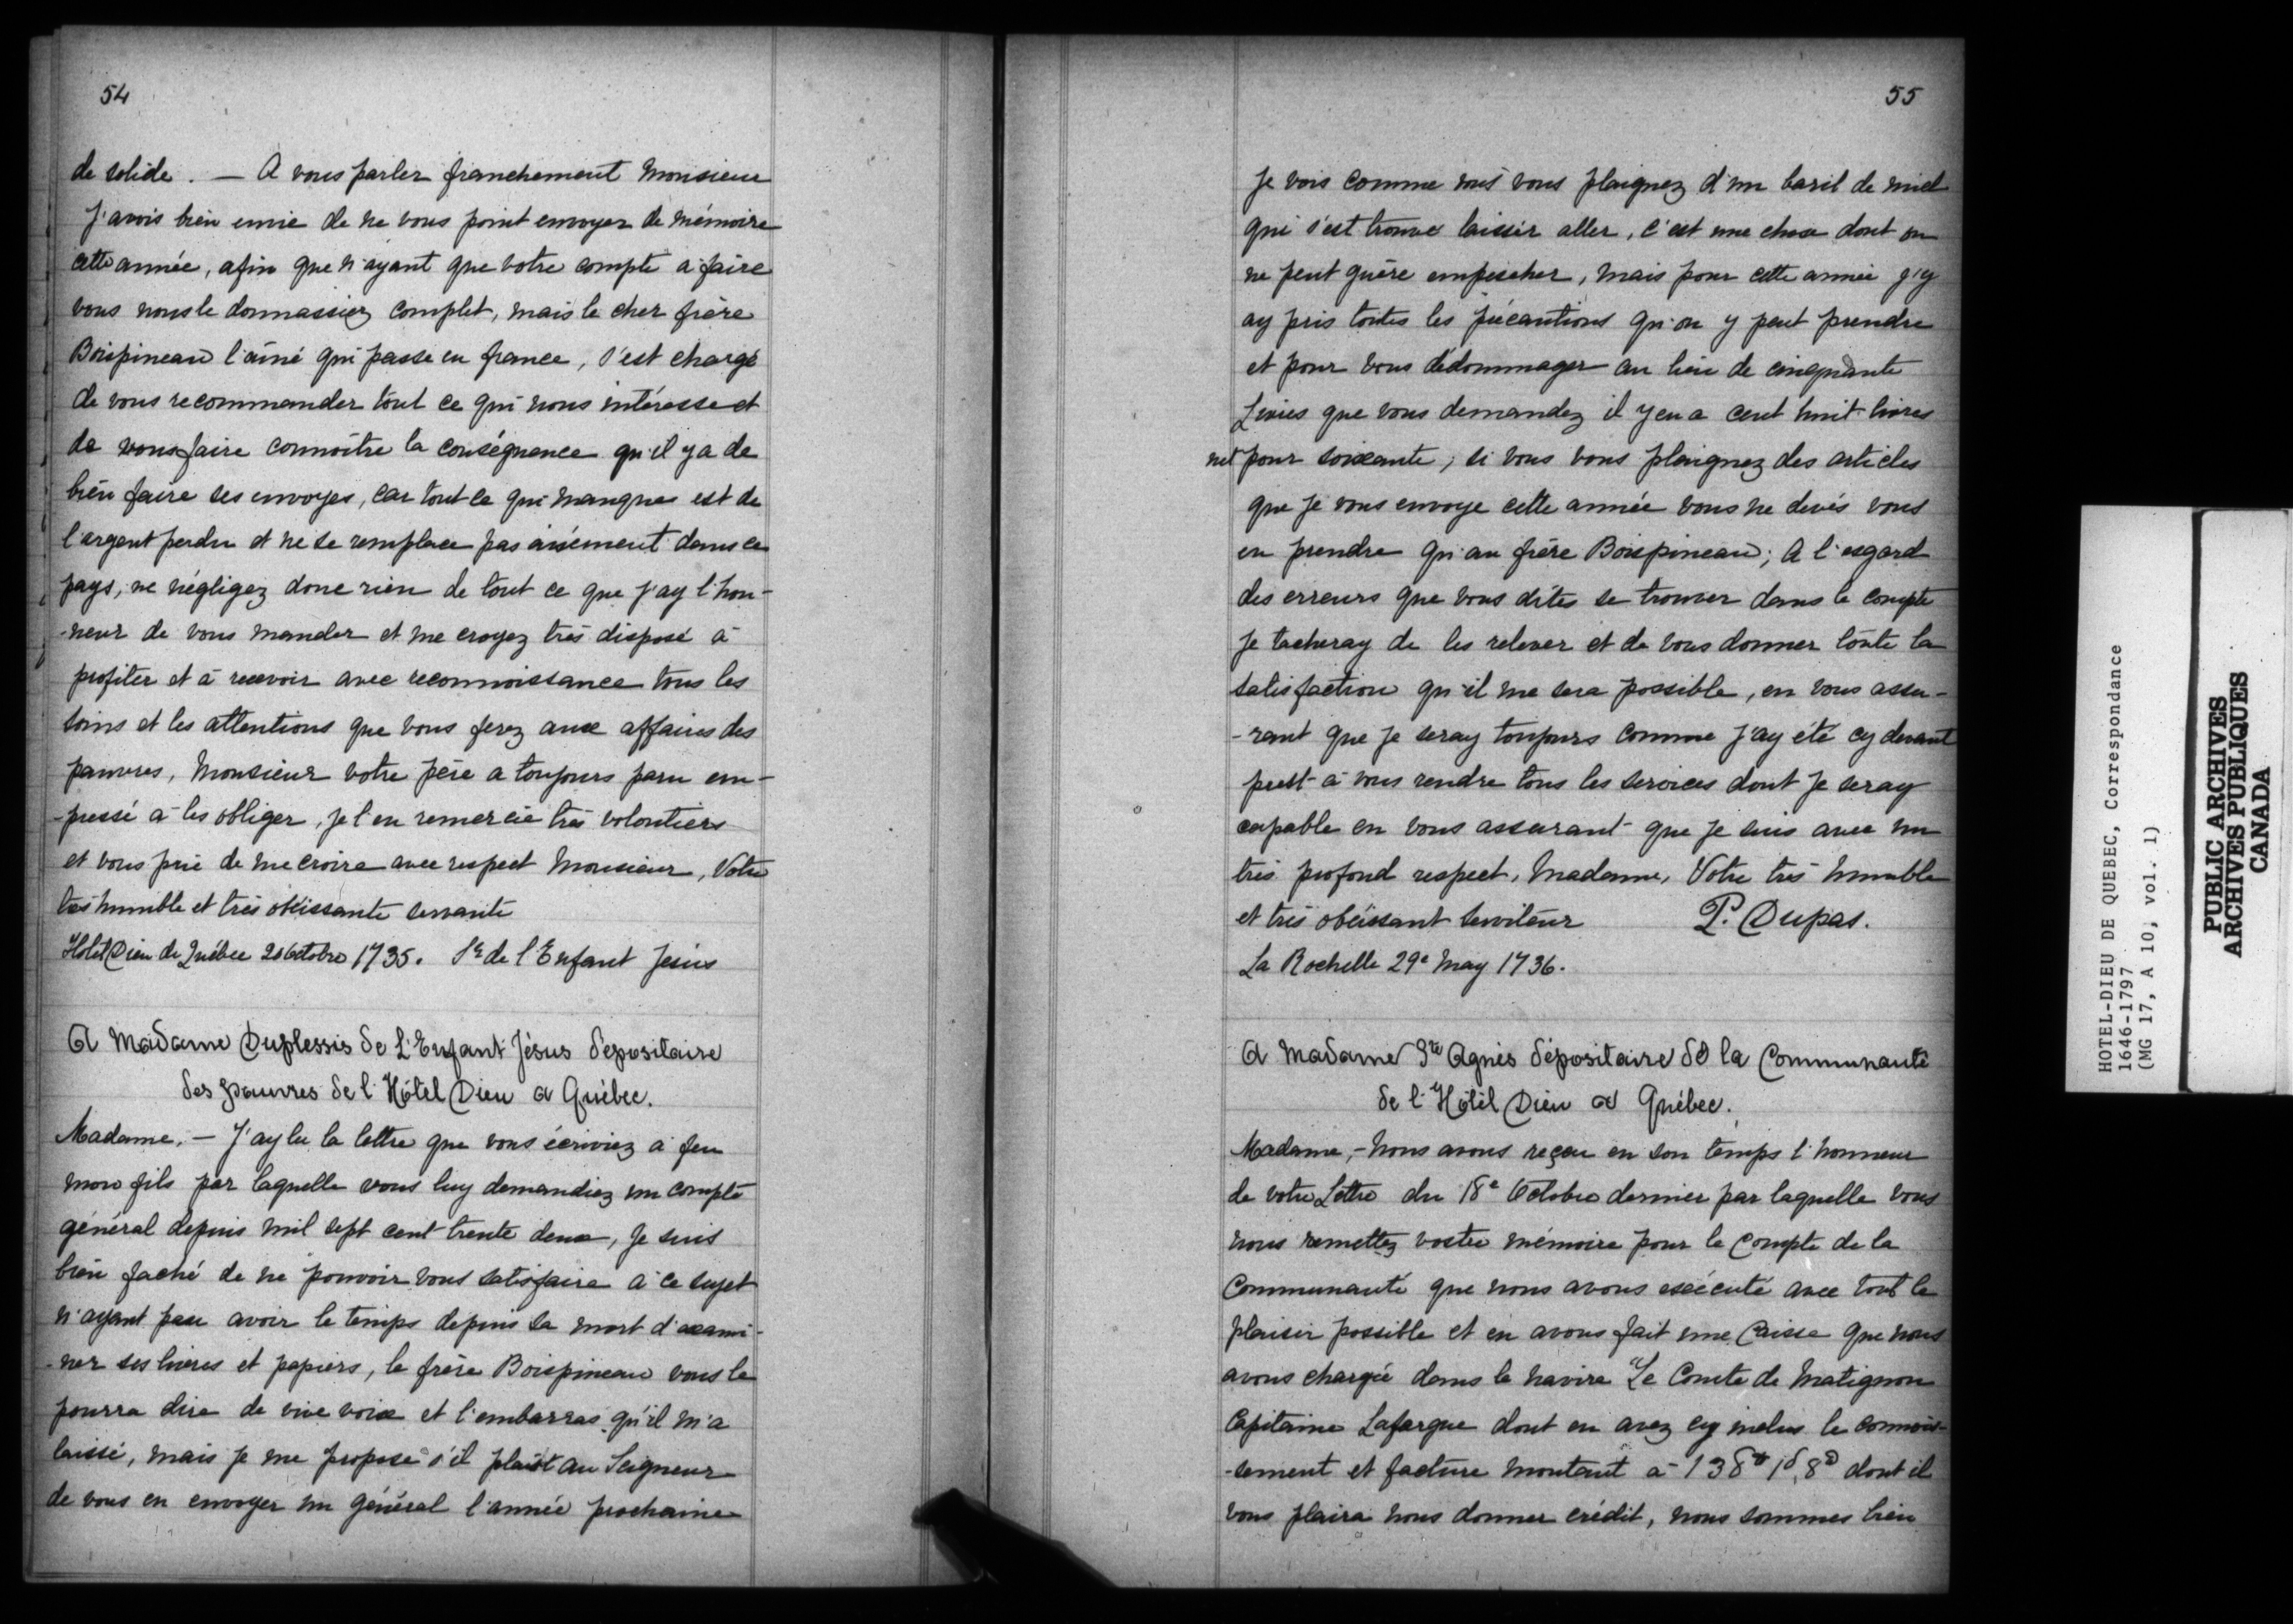 54
de solide. — A vous parler franchement Monsieur
J'avois bien envie de ne vous point envoyer de mémoire
cette année, afin que n'ayant que votre compte a faire
vous nous le donnassiez complet, mais le cher frère
Boispineau l'aîné qui passe en france, s'est chargé
de vous recommander tout ce qui nous intéresse et
de vous faire connoître la conséquence qu'il y a de
bien faire ses envoyes, car tout ce qui manque est de
l'argent perdu et ne se remplace pas aisément dans ce
pays, ne négligez donc rien de tout ce que j'ay l'hon-
-neur de vous mander et me croyez très disposé à
profiter et à recevoir avec reconnoissance tous les
soins et les attentions que vous ferez aux affaires des
pauvres, Monsieur votre père a toujours paru em-
-pressé à les obliger, je l'en remercie très volontiers
et vous prie de me croire avec respect Monsieur, Votre
très humble et très obéissante servante
Hotel Dieu de Québec 20 Octobre 1735. Sr de l'Enfant Jésus
A Madame Duplessis de L'Enfant Jésus dépositaire
des pauvres de l'Hôtel Dieu a Québec.
Madame, — J'ay lu la lettre que vous écriviez a feu
mon fils par laquelle vous luy demandiez un compte
général depuis mil sept cent trente deux, Je suis
bien faché de ne pouvoir vous satisfaire à ce sujet
n'ayant peu avoir le temps depuis sa mort d'exami-
-ner ses livres et papiers, le frère Boispineau vous le
pourra dire de vive voix et l'embarras qu'il m'a
laissé, mais je me propose s'il plaist au Seigneur
de vous en envoyer un général l'année prochaine
55
Je vois comme vous vous plaignez d'un baril de miel
qui s'est trouvé laisser aller, c'est une chose dont on
ne peut guère empescher, mais pour cette année j'y
ay pris toutes les précautions qu'on y peut prendre
et pour vous dédommager au lieu de cinquante
Livres que vous demandez il y en a cent huit livres
net pour soixante; si vous vous plaignez des articles
que je vous envoye cette année vous ne devés vous
en prendre qu'au frère Boispineau; A l'esgard
des erreurs que vous dites se trouver dans le compte
Je tacheray de les relever et de vous donner toute la
satisfaction qu'il me sera possible, en vous assu-
-rant que je seray toujours comme j'ay été cy devant
prest à vous rendre tous les services dont je seray
capable en vous assurant que je suis avec un
très profond respect, Madame, Votre très humble
et très obéissant serviteur P. Dupas.
La Rochelle 29e May 1736.
A Madame Ste Agnès dépositaire de la Communauté
de l'Hôtel Dieu a Québec.
Madame, - Nous avons reçeu en son temps l'honneur
de votre Lettre du 18e Octobre dernier par laquelle vous
nous remettez vostre mémoire pour le Compte de la
Communauté que nous avons exécuté avec tout le
plaisir possible et en avons fait une Caisse que nous
avons chargée dans le navire "Le Comte de Matignon
Capitaine Lafargue dont en avez cy inclus le connois-
-sement et facture montant à 138# 1s, 8d dont il
vous plaira nous donner crédit, nous sommes bien
HOTEL-DIEU DE QUEBEC, Correspondance
1646-1797
(MG 17, A 10, vol. 1)
PUBLIC ARCHIVES
ARCHIVES PUBLIQUES
CANADA